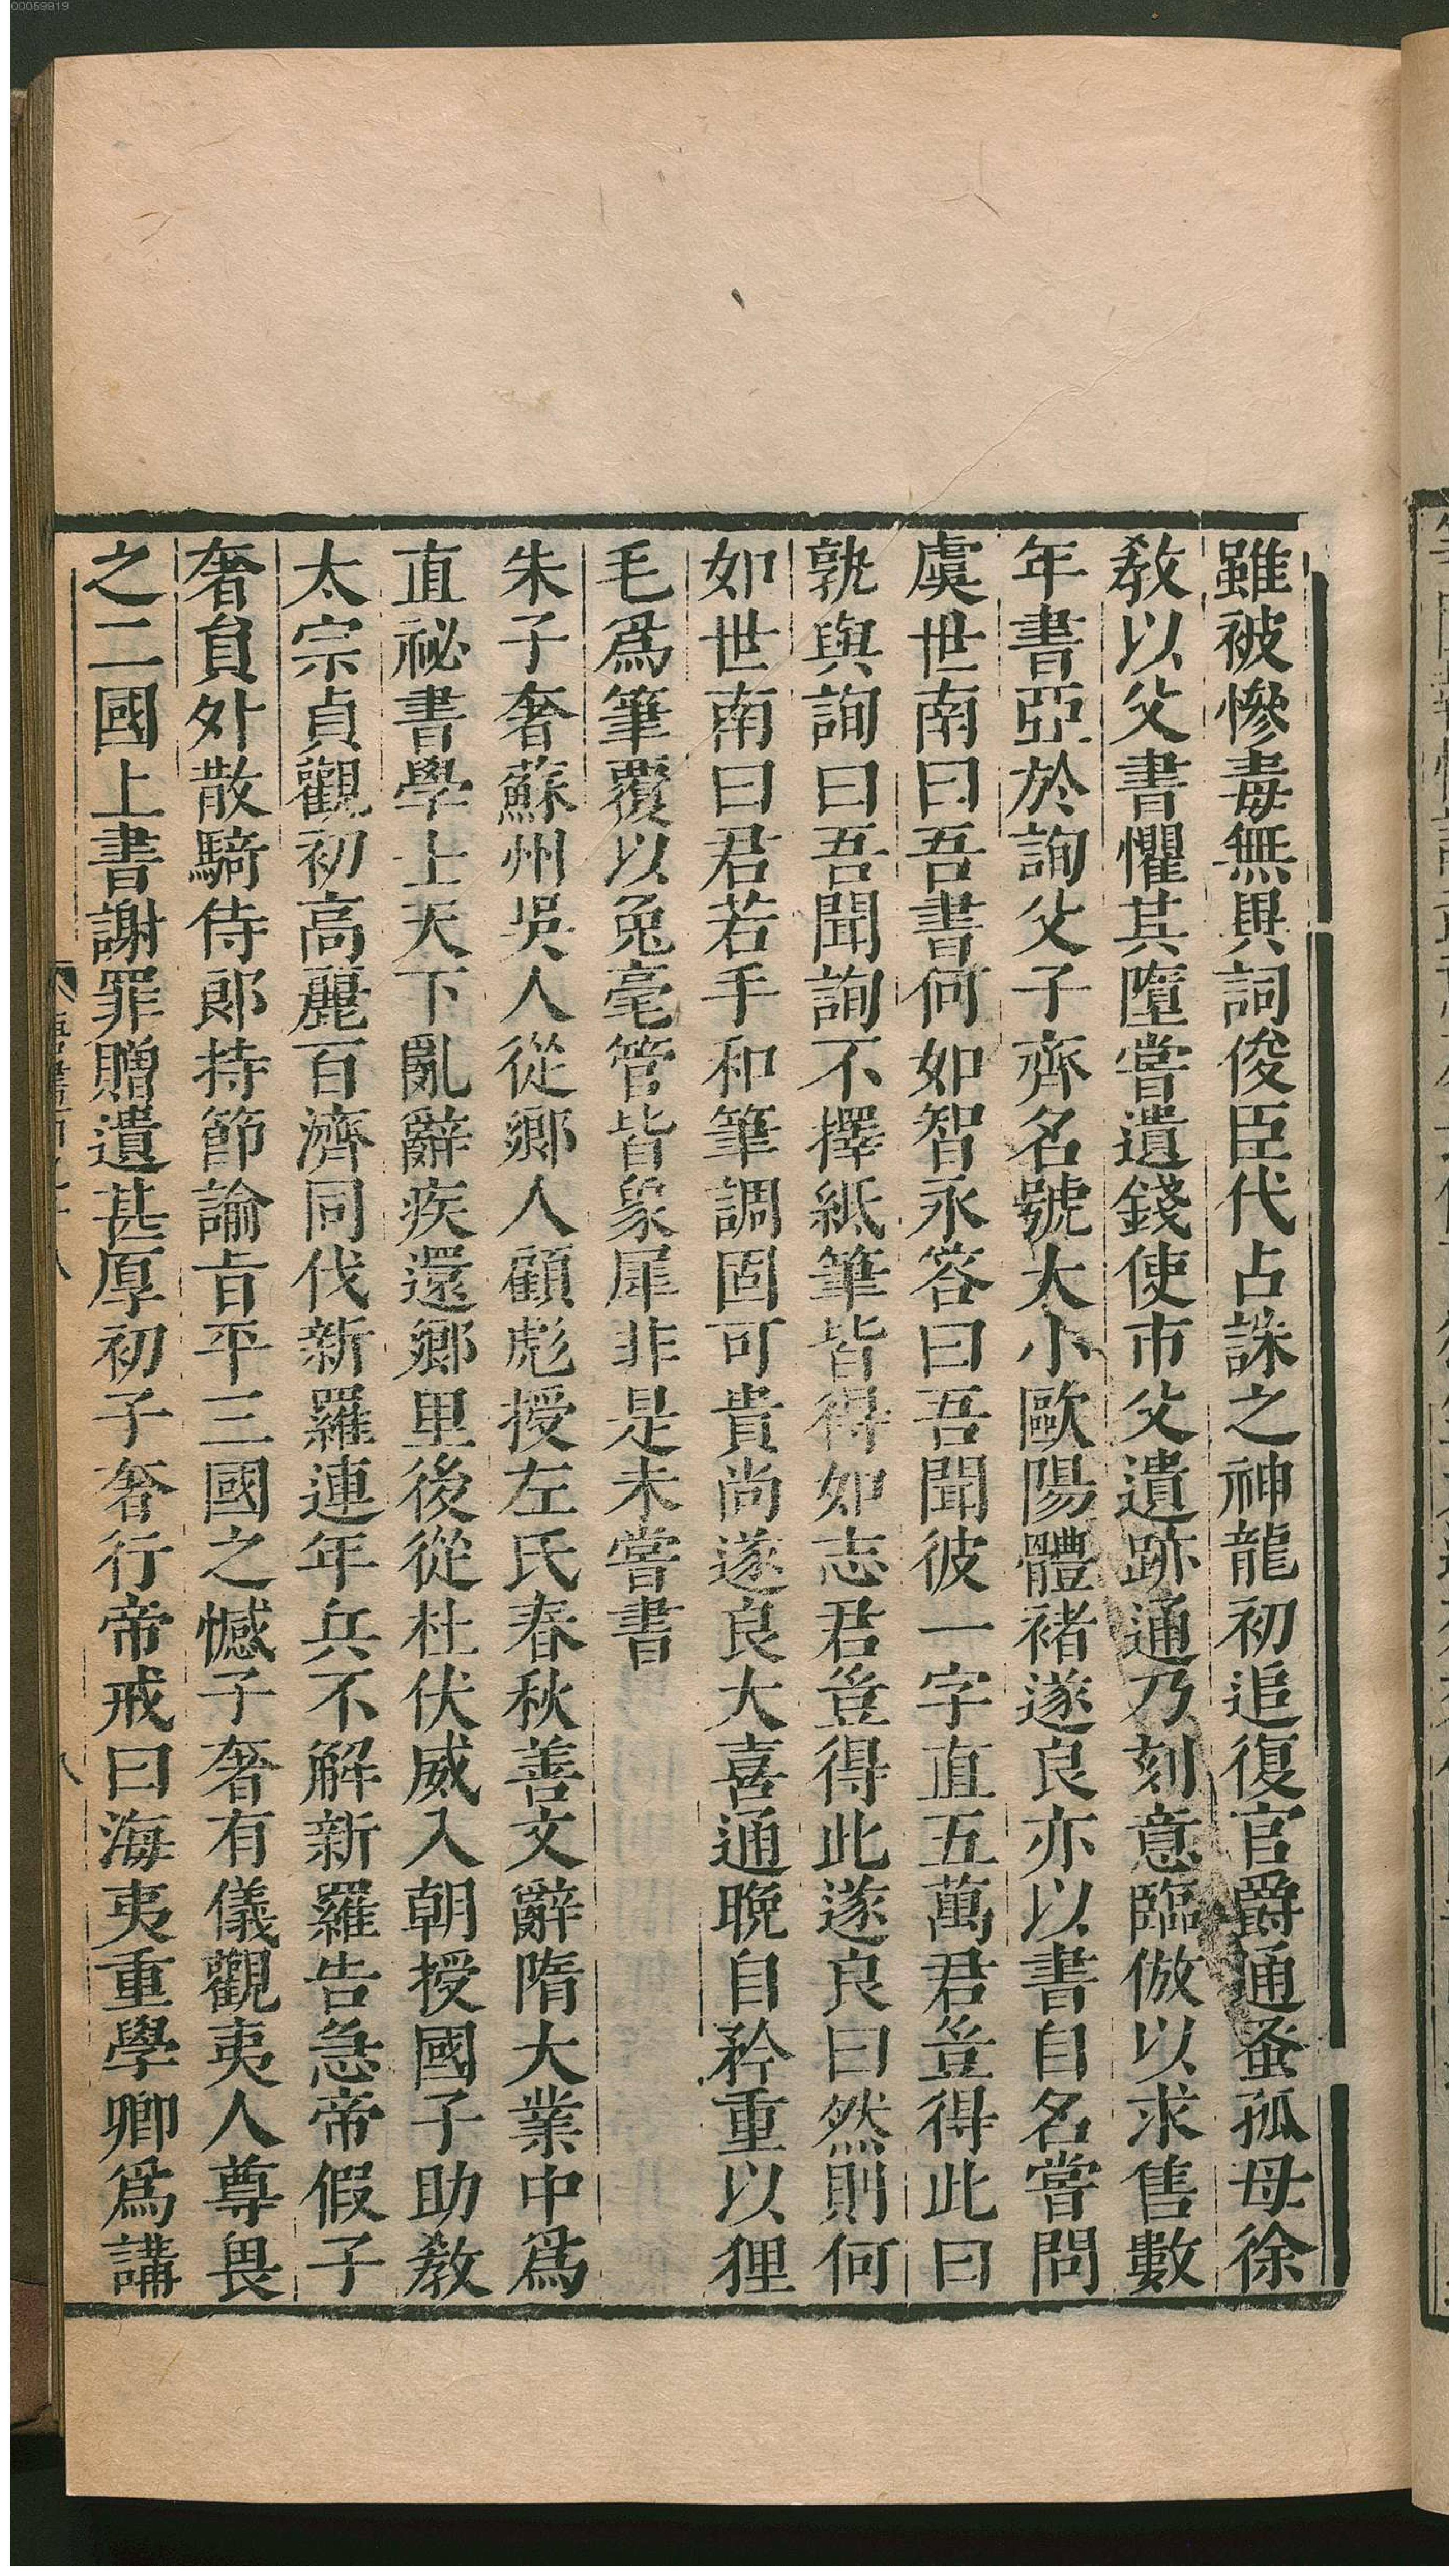 00059919
雖被慘毒無異詞俊臣代占誅之神龍初追復官爵通蚤孤母徐
教以父書懼其墮嘗遺錢使市父遺跡通乃刻意臨倣以求售數
年書亞於詢父子齊名號大小歐陽體褚遂良亦以書自名嘗問
虞世南曰吾書何如智永答曰吾聞彼一字直五萬君豈得此曰
孰與詢曰吾聞詢不擇紙筆皆得如志君豈得此遂良曰然則何
如世南曰君若手和筆調固可貴尚遂良大喜通晚自矜重以狸
毛爲筆覆以兔毫管皆象犀非是未嘗書
朱子奢蘇州吳人從鄉人顧彪授左氏春秋善文辭隋大業中爲
直祕書學士天下亂辭疾還鄉里後從杜伏威入朝授國子助教
太宗貞觀初高麗百濟同伐新羅連年兵不解新羅告急帝假子
奢員外散騎侍郎持節諭旨平三國之憾子奢有儀觀夷人尊畏
之二國上書謝罪贈遺甚厚初子奢行帝戒曰海夷重學卿爲講